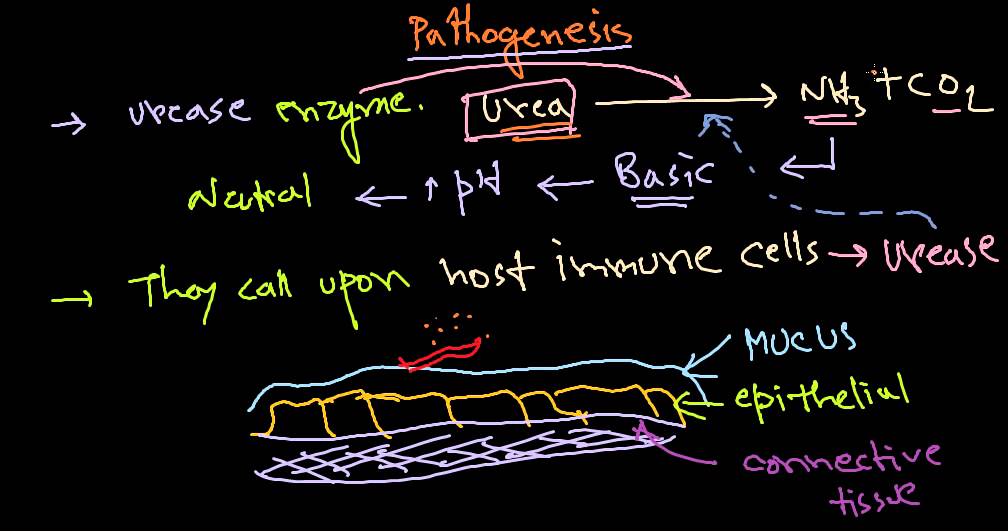 Pathogenesis
→ urease enzyme. Urea → NH3 + CO2
Neutral ← ↑ pH ← Basic
→ They call upon host immune cells → Urease
Mucus
epithelial
connective
tissue